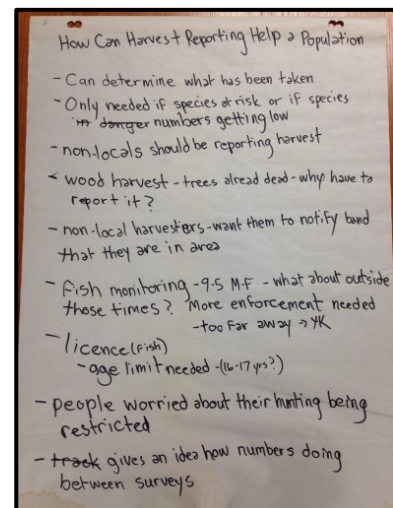 How Can Harvest Reporting Help a Population
- Can determine what has been taken
- Only needed if species at risk or if species
in danger numbers getting low
- non-locals should be reporting harvest
- wood harvest - trees alread dead - why have to
report it?
- non-local harvesters - want them to notify band
that they are in area
- fish monitoring - 9-5 M-F - what about outside
those times? More enforcement needed
- too far away → YK
- licence (fish)
- age limit needed - (16-17 yrs?)
- people worried about their hunting being
restricted
- track gives an idea how numbers doing
between surveys